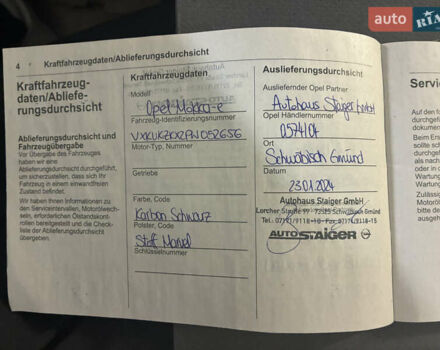 auto RIA
4 Kraftfahrzeugdaten/Ablieferungsdurchsicht
Kraftfahrzeug-
daten/Abliefe-
rungsdurchsicht
Ablieferungsdurchsicht und
Fahrzeugübergabe
Vor Übergabe des Fahrzeuges
haben wir eine
Ablieferungsdurchsicht durchgeführt,
um sicherzustellen, dass sich Ihr
Fahrzeug in einem einwandfreien
Zustand befindet.
Wir haben Ihnen Informationen zu
den Serviceintervallen, Motorölwech-
seln, erforderlichen Ölstandskont-
rollen bereitgestellt und die Check-
liste der Ablieferungsdurchsicht
übergeben.
Kraftfahrzeugdaten
Modell
Opel Mokka-e
Fahrzeug-Identifizierungsnummer
VXKUKZKXZPW052656
Motor-Typ, Nummer
Getriebe
Farbe, Code
Karbon Schwarz
Polster, Code
Stoff Marvel
Schlüsselnummer
Auslieferungsdurchsicht
Ausliefernder Opel Partner
Autohaus Staiger GmbH
Opel Händlernummer
0574104
Ort
Schwäbisch Gmünd
Datum
23.01.2024
Autohaus Staiger GmbH
Lorcher Straße Schwäbisch Gmünd
AUTO STAIGER
Servi